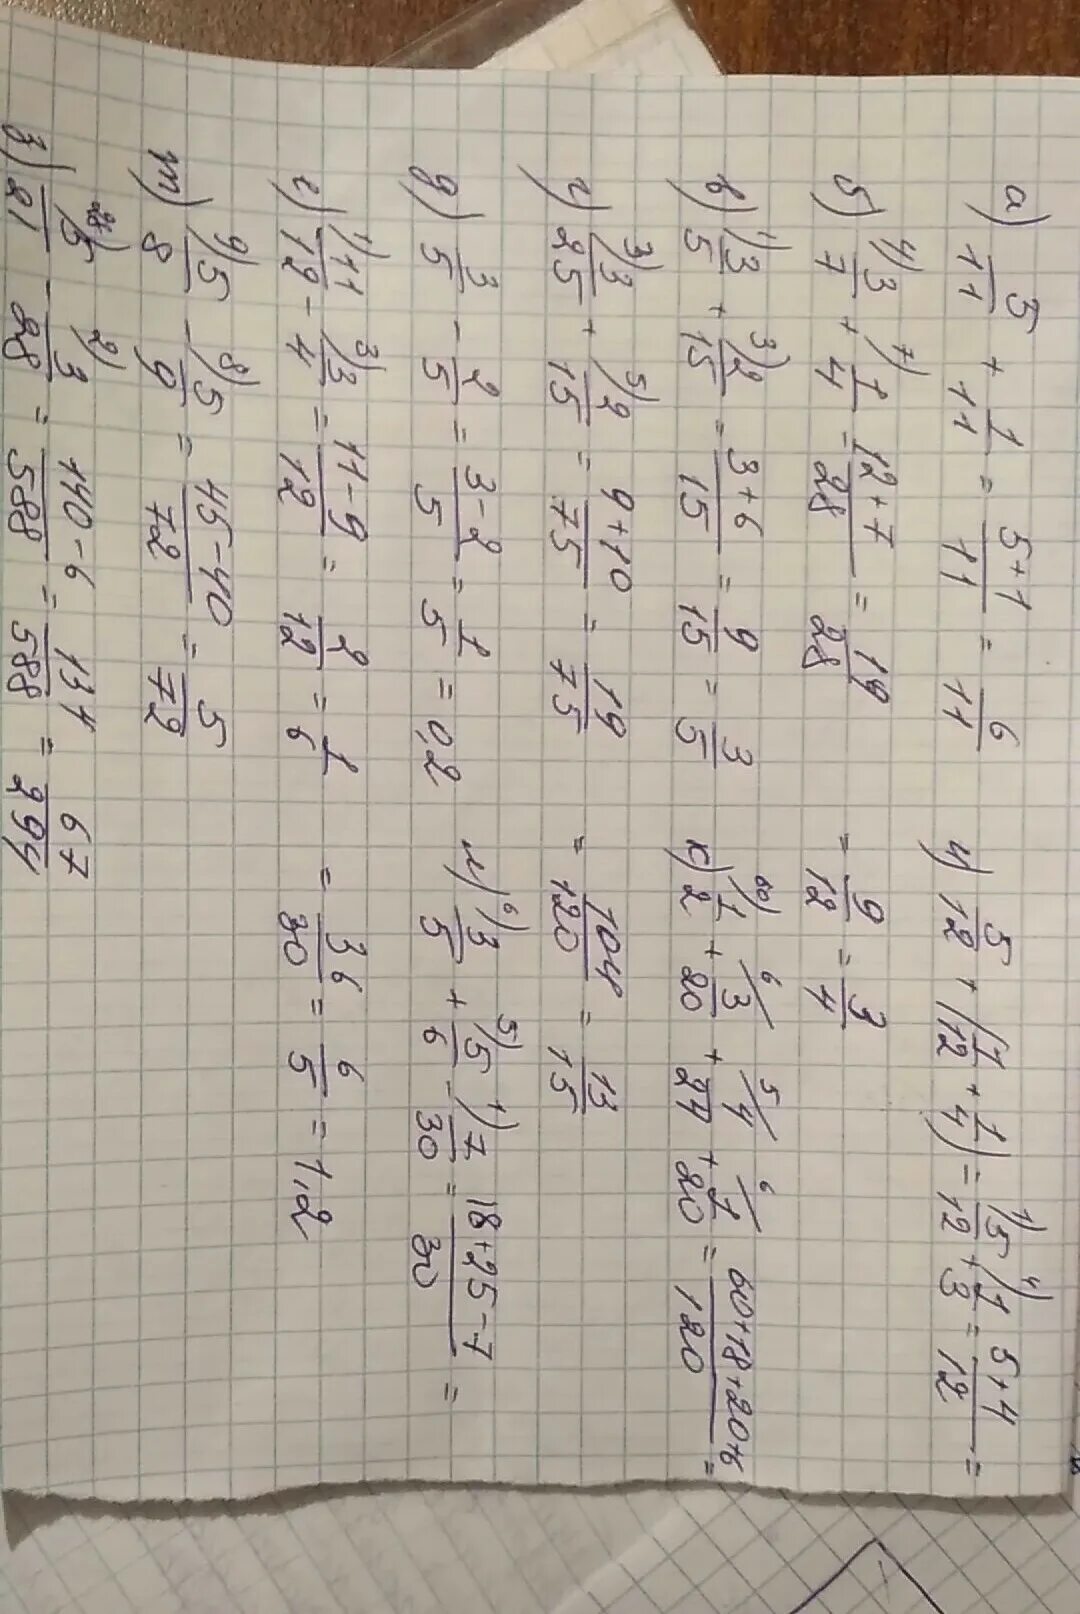 а) 5/11 + 1/11 = 5+1/11 = 6/11
б) 4) 3/7 + 7) 1/4 = 12+7/28 = 19/28
в) 1) 3/5 + 3) 2/15 = 3+6/15 = 9/15 = 3/5
г) 3) 3/25 + 5) 2/15 = 9+10/75 = 19/75
д) 3/5 - 2/5 = 3-2/5 = 1/5 = 0,2
е) 1) 11/12 - 3) 3/4 = 11-9/12 = 2/12 = 1/6
ж) 9) 5/8 - 8) 5/9 = 45-40/72 = 5/72
з) 28) 5/21 - 2) 3/28 = 140-6/588 = 134/588 = 67/294
и) 5/12 + (1/12 + 1/4) = 1) 5/12 + 4) 1/3 = 5+4/12 =
= 9/12 = 3/4
к) 60) 1/2 + 6) 3/20 + 5) 4/24 + 6) 1/20 = 60+18+20+6/120 =
= 104/120 = 13/15
л) 6) 3/5 + 5) 5/6 - 1) 7/30 = 18+25-7/30 =
= 36/30 = 6/5 = 1,2